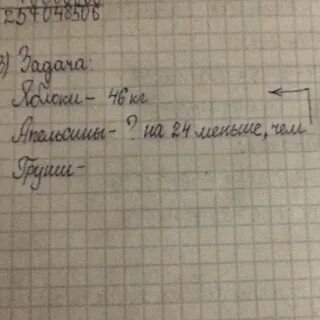 254048506
3) Задача:
Яблоки - 46 кг
Апельсины - ? на 24 меньше, чем
Груши -